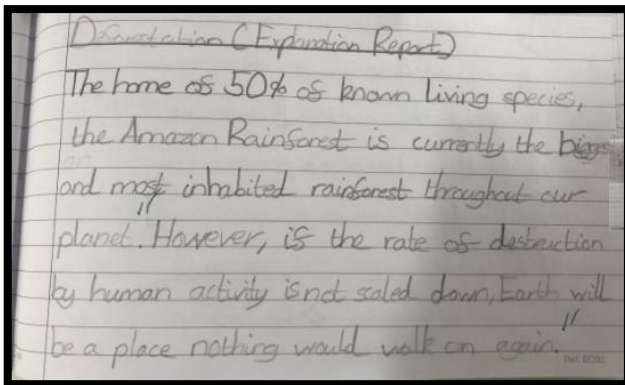 Deforestation (Explanation Report)
The home of 50% of known living species,
the Amazon Rainforest is currently the bigges
and most inhabited rainforest throughout our
planet. However, if the rate of destruction
by human activity is not scaled down, Earth will
be a place nothing would walk on again.